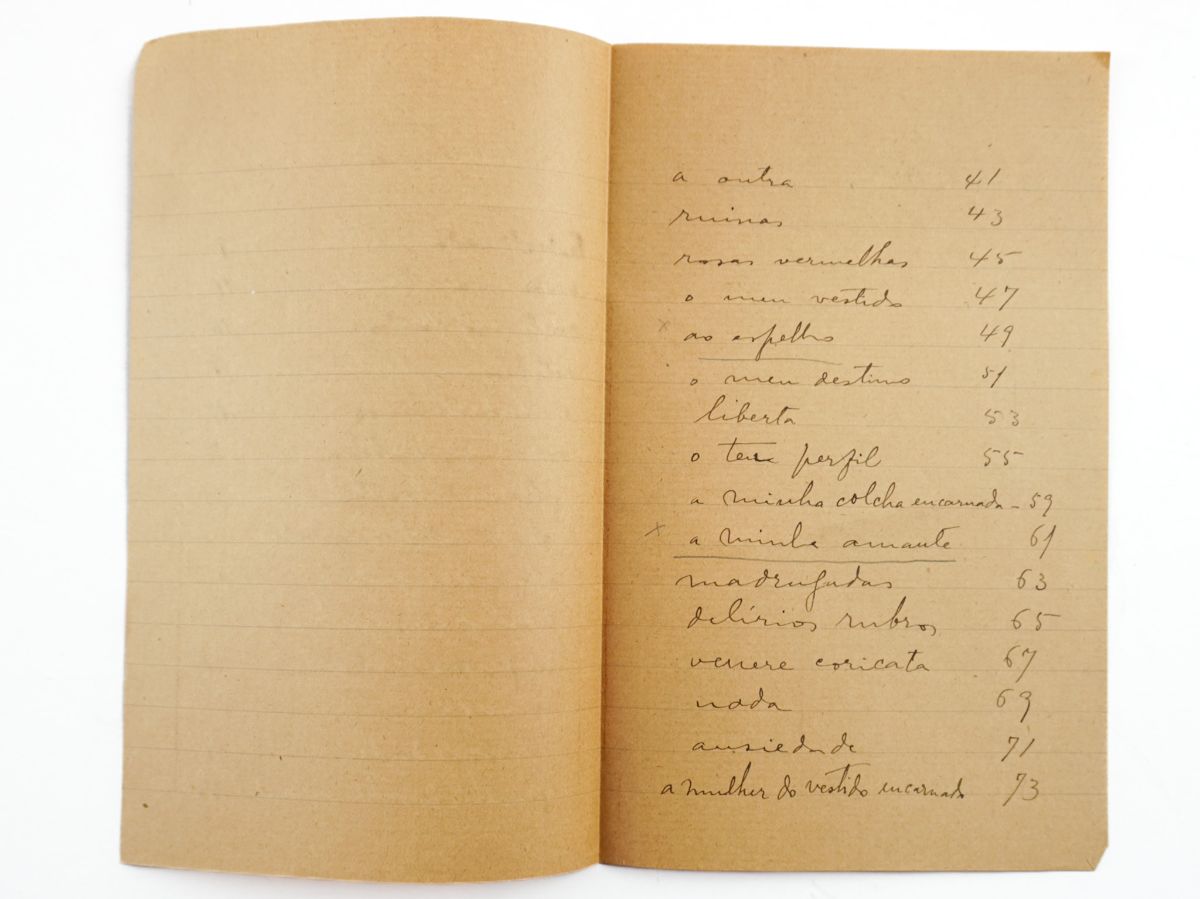 a outra 41
ruinas 43
rosas vermelhas 45
o meu vestido 47
x ao espelho 49
o meu destino 51
liberta 53
o teu perfil 55
a minha colcha encarnada - 59
x a minha amante 61
madrugadas 63
delírios rubros 65
venere coricata 67
nada 69
ansiedade 71
a mulher do vestido encarnado 73